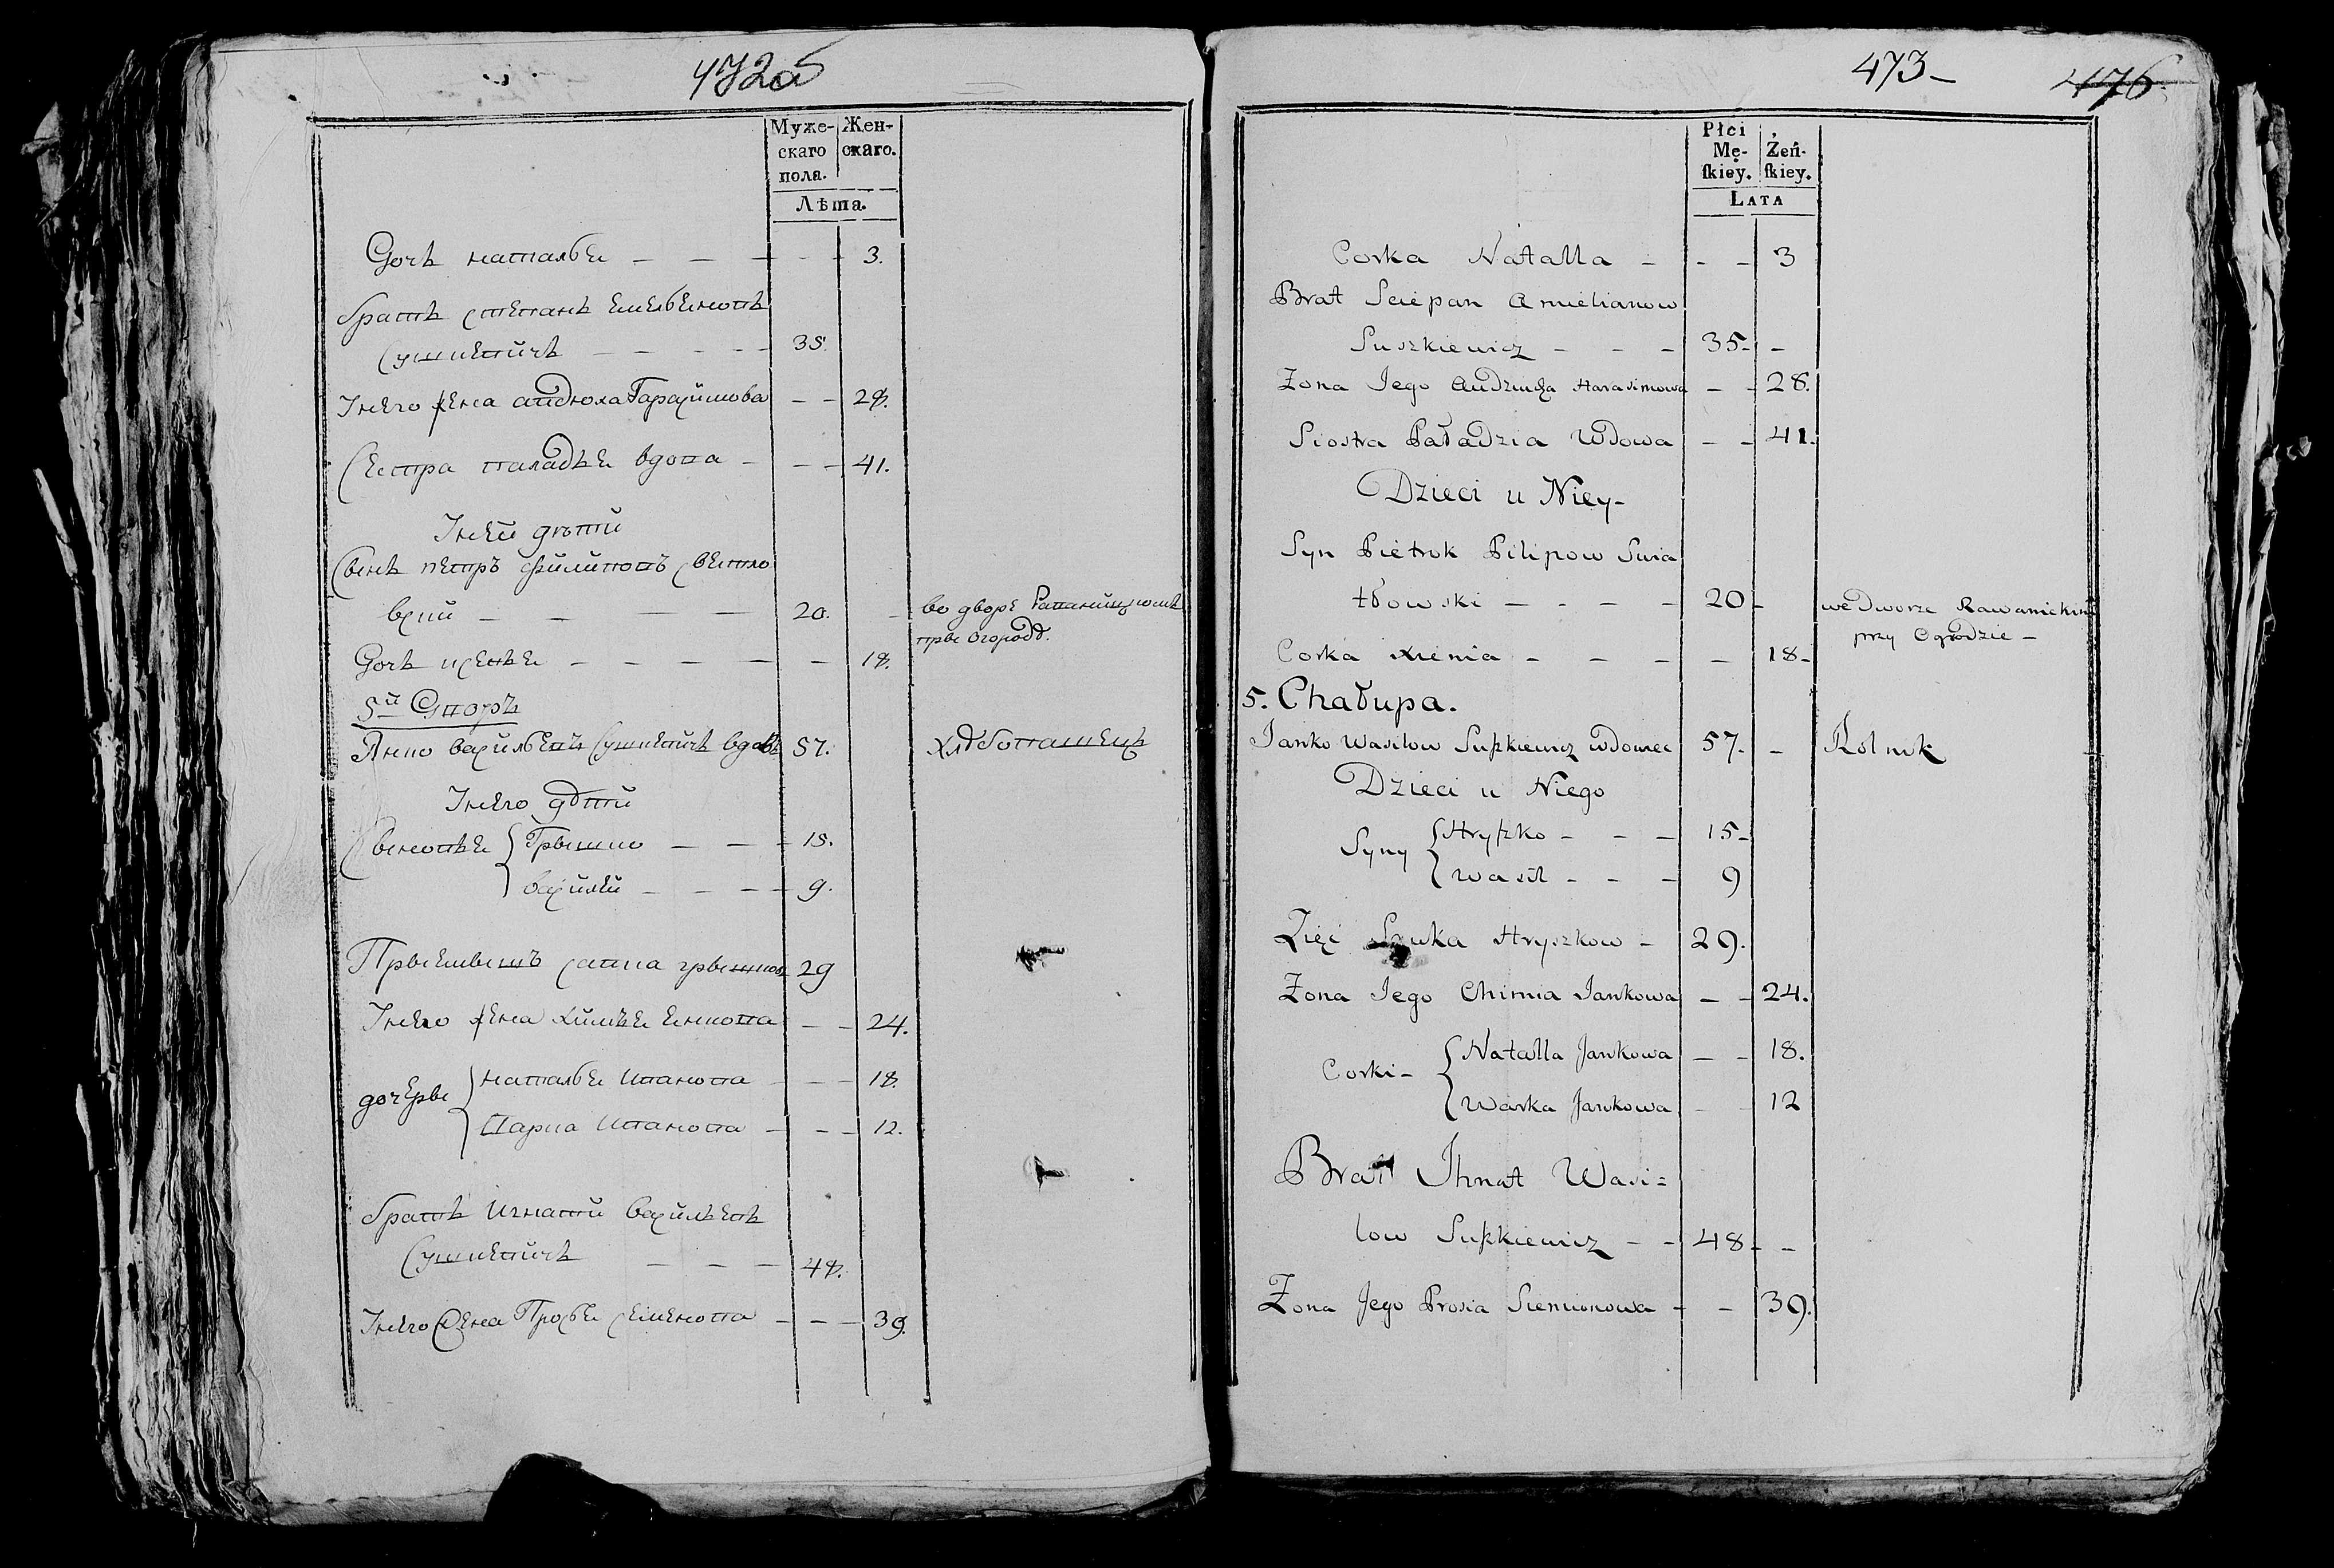 472об
Муже-
скаго
пола.
Жен-
скаго.
Лѣта.
Дочь наталья 3.
братъ степанъ Емельяновъ
Сушкевичъ 35.
Унего жена андюха Гарасимова 28.
Сестра паладья вдова 41.
Унеи дѣти
Сынъ петръ филиповъ светло
вский 20. во дворе Раваницкомъ
при огородѣ.
Дочь ксенья 18.
5й Дворъ
Янко васильевъ Сушкевичъ вдовъ 57. хлѣбопашецъ
Унего дѣти
Сыновья { Грышко 15.
василей 9.
Приемышъ савка грышков 29
Унего жена химья енкова 24.
дочери { наталья иванова 18.
варка иванова 12.
братъ игнатий васильевъ
Сушкевичъ 48.
Унего жена Просья семенова 39.
473 476
Płci
Mę-
ſkiey.
Żeń-
ſkiey.
LATA
Corka Natalla 3
Brat Sciepan Amielianow
Suszkiewicz 35
Zona Jego Audziucha Harasimowa 28.
Siostra Paładzia Wdowa 41.
Dzieci u Niey
Syn Piétrok Pilipow Swia
tłowski 20 we Dworze Rawanickim
przy Ogrodzie
Corka Xienia 18
5. Chałupa.
Janko Wasilow Suſzkiewicz wdowiec 57. Rolnik
Dzieci u Niego
Syny { Hryſzko 15
Wasil 9
Zięć Sawka Hryszkow 29.
Zona Jego Chimia Jankowa 24.
Corki { Natalla Jankowa 18.
Warka Jankowa 12
Brat Ihnat Wasi=
low Suſzkiewicz 48
Zona Jego Prosia Siemionowa 39.